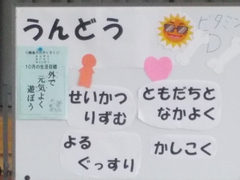 うんどう
ビタミン
D
10月の生活目標
外で
元気よく
遊ぼう
せいかつ
りずむ
ともだちと
なかよく
よる
ぐっすり
かしこく